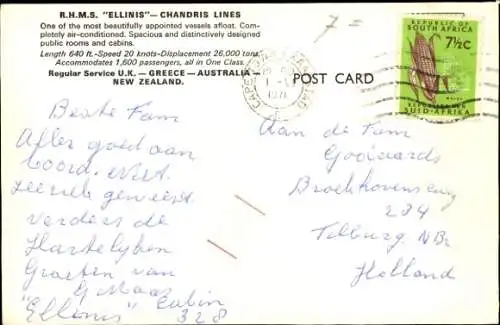 R.H.M.S. "ELLINIS"— CHANDRIS LINES
One of the most beautifully appointed vessels afloat. Com-
pletely air-conditioned. Spacious and distinctively designed
public rooms and cabins.
Length 640 ft.-Speed 20 knots-Displacement 26,000 tons.
Accommodates 1,600 passengers, all in One Class.
Regular Service U.K. — GREECE — AUSTRALIA —
NEW ZEALAND.
7 =
POST CARD
1971
REPUBLIC OF
SOUTH AFRICA
7½c
SUID-AFRIKA
Beste Fam
Alles goed aan
boord. Niet
geweest
verders de
Hartelyken
Groeten van
G Maas
"Ellinis" Cabin
328
Aan de Fam
Broekhovenseweg
234
Tilburg NBr
Holland